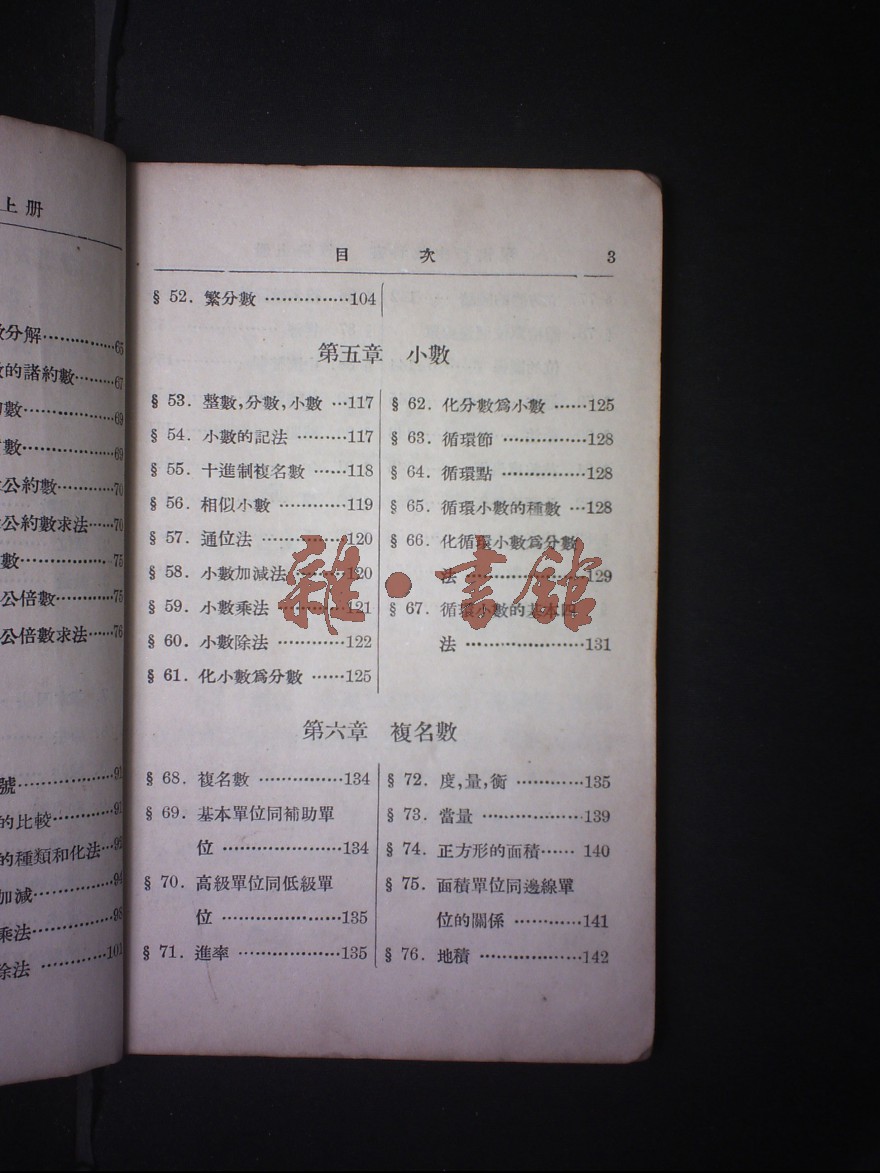 上册
分解……………65
的諸約數………67
數……………69
數……………69
公約數…………70
公約數求法……70
數……………75
公倍數…………75
公倍數求法……76
號……………91
的比較…………91
的種類和化法…92
加減……………94
乘法……………98
除法…………101
目 次 3
§ 52. 繁分數 ……………104
第五章 小數
§ 53. 整數,分數,小數 …117
§ 54. 小數的記法 ………117
§ 55. 十進制複名數 ……118
§ 56. 相似小數 …………119
§ 57. 通位法 ……………120
§ 58. 小數加減法 ………120
§ 59. 小數乘法 …………121
§ 60. 小數除法 …………122
§ 61. 化小數爲分數 ……125
§ 62. 化分數爲小數 ……125
§ 63. 循環節 ……………128
§ 64. 循環點 ……………128
§ 65. 循環小數的種數 …128
§ 66. 化循環小數爲分數
法 …………………129
§ 67. 循環小數的基本四
法 …………………131
第六章 複名數
§ 68. 複名數 ……………134
§ 69. 基本單位同補助單
位 …………………134
§ 70. 高級單位同低級單
位 …………………135
§ 71. 進率 ………………135
§ 72. 度,量,衡 …………135
§ 73. 當量 ………………139
§ 74. 正方形的面積…… 140
§ 75. 面積單位同邊線單
位的關係 …………141
§ 76. 地積 ………………142
雜·書館